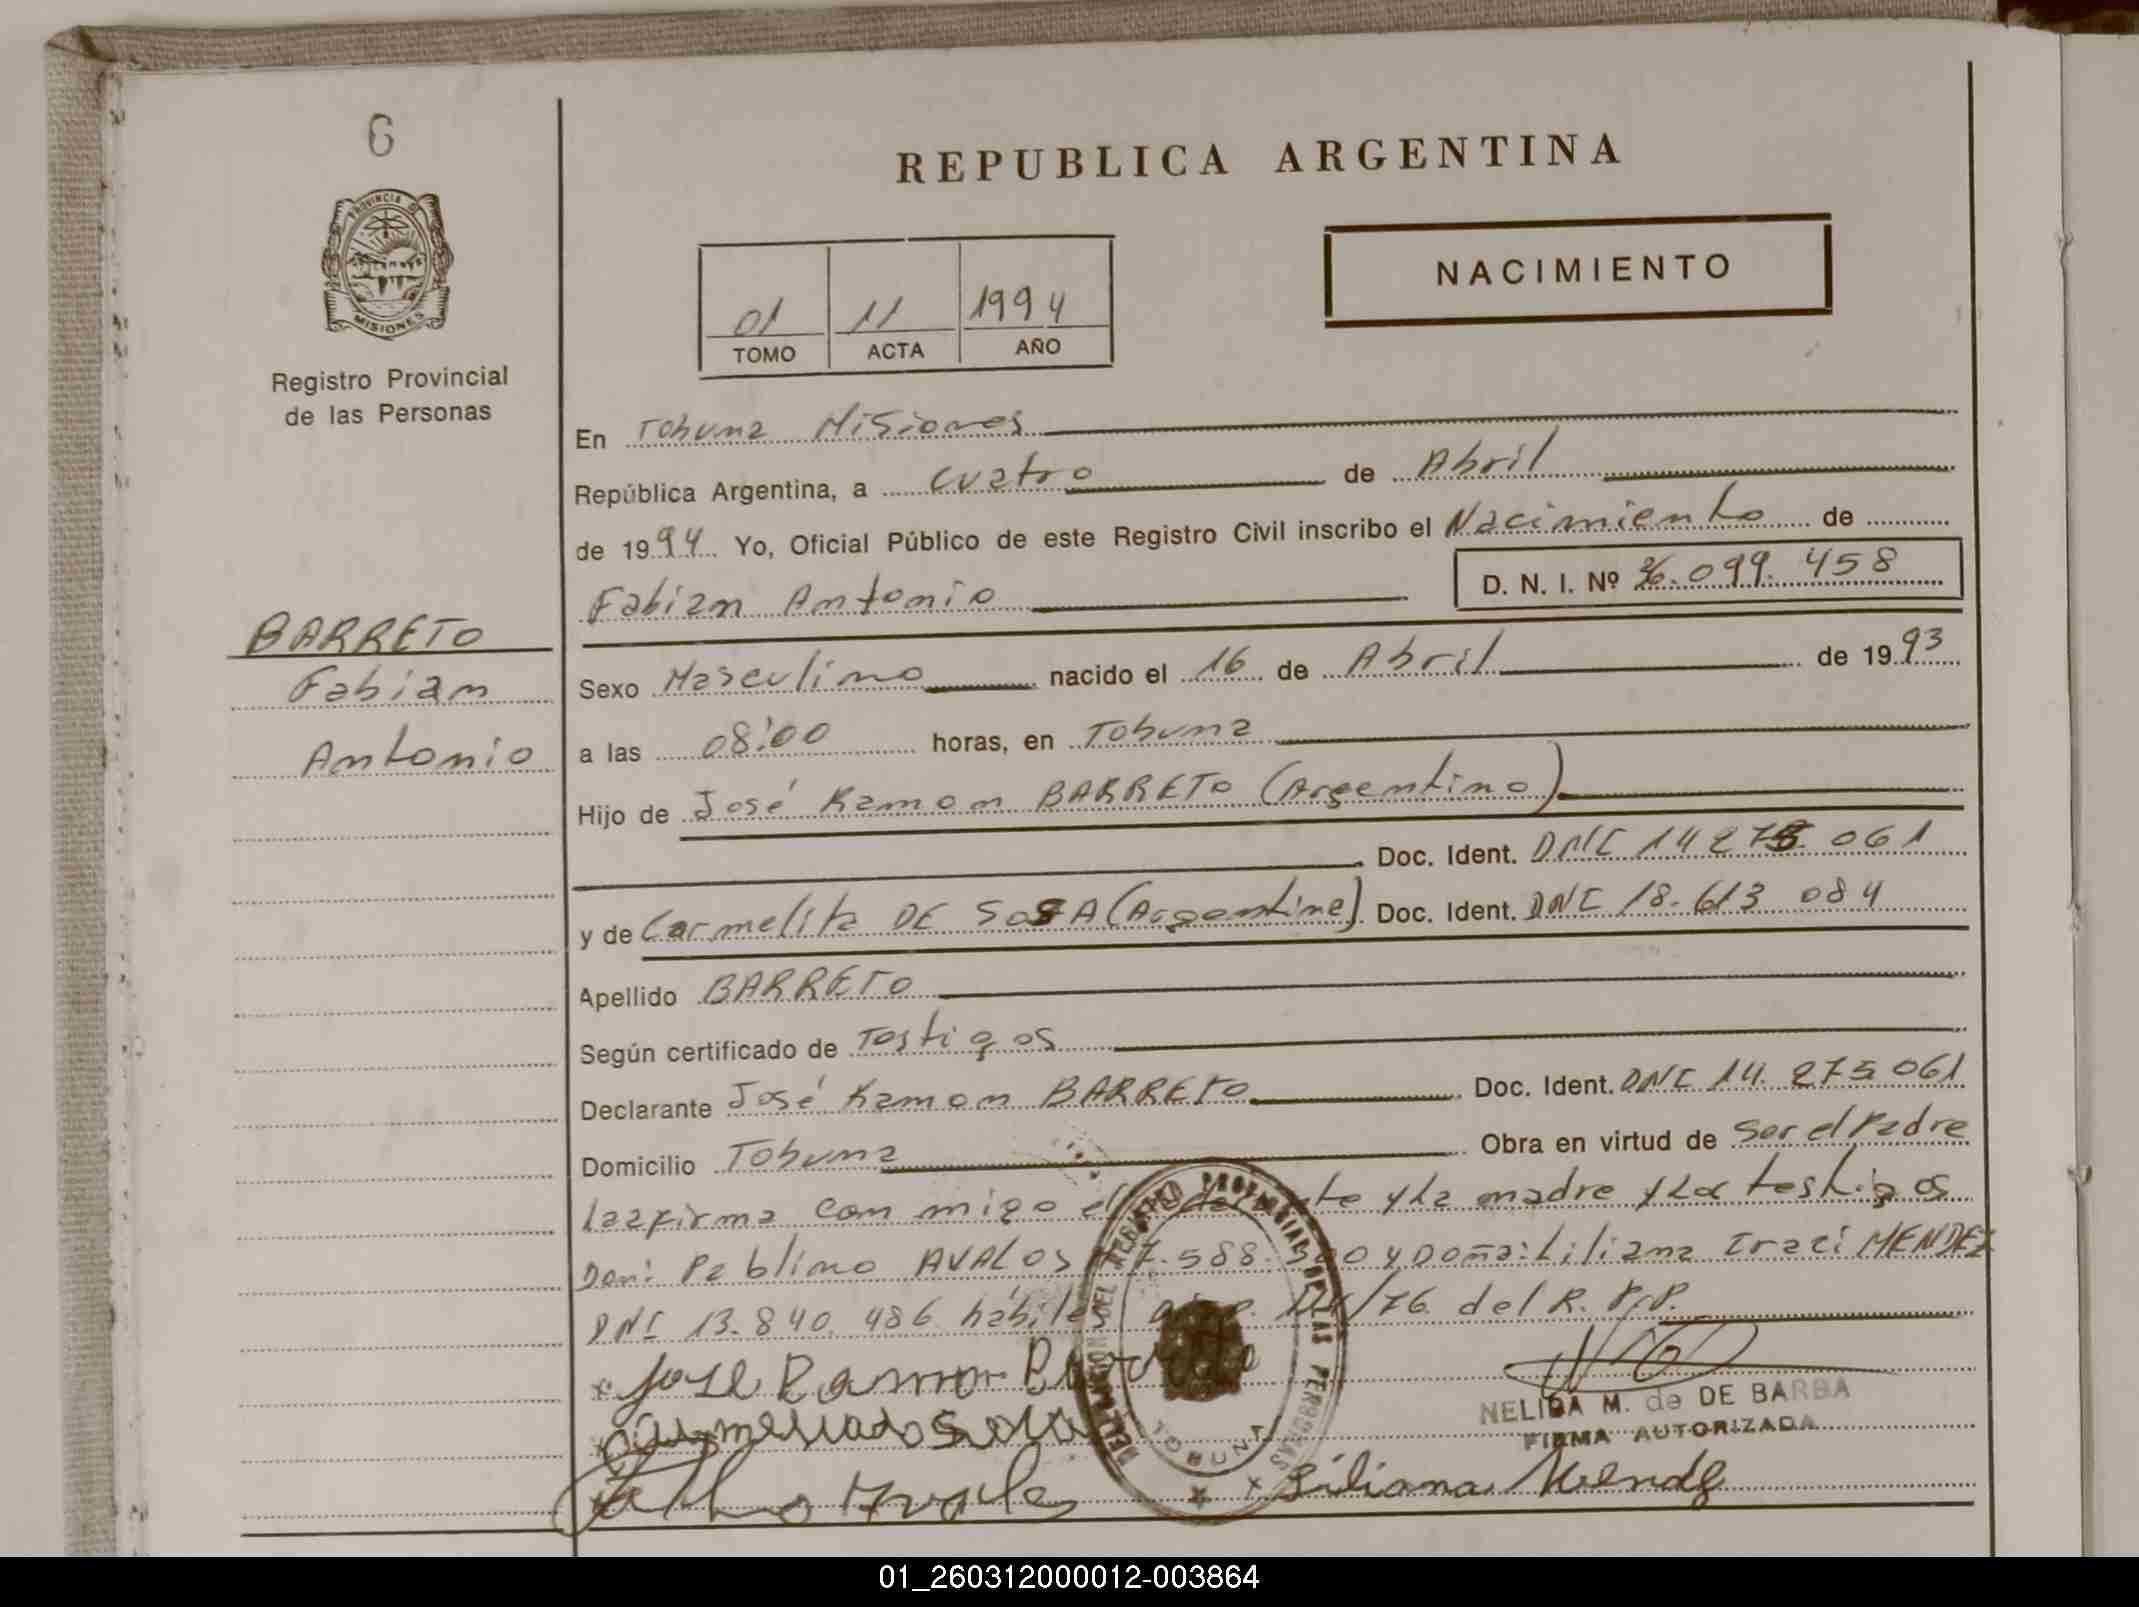 6
REPUBLICA ARGENTINA
PROVINCIA D
MISIONES
Registro Provincial
de las Personas
01 11 1994
TOMO ACTA AÑO
NACIMIENTO
En Tobuna Misiones
República Argentina, a cuatro de Abril
de 1994 Yo, Oficial Público de este Registro Civil inscribo el Nacimiento de
Fabian Antonio D. N. I. Nº 36.099.458
BARRETO
Fabian
Antonio
Sexo Masculino nacido el 16 de Abril de 1993
a las 08:00 horas, en Tobuna
Hijo de José Ramon BARRETO (Argentino)
Doc. Ident. DNI 14 275 061
y de Carmelita DE SOSA (Argentina) Doc. Ident. DNI 18.613 084
Apellido BARRETO
Según certificado de Testigos
Declarante José Ramon BARRETO Doc. Ident. DNI 14. 275 061
Domicilio Tobuna Obra en virtud de Ser el Padre
con migo el te y La madre y Los testigos
Don: Pablino AVALOS 7.588. y Doña: Liliana Iraci MENDEZ
DNI 13.840.486 hábiles /76 del R. P.P.
x Jose Ramon
NELIDA M. de DE BARBA
FIRMA AUTORIZADA
x Liliana Mendez
DELEGACION DEL REGISTRO PROVINCIAL DE LAS PERSONAS
TOBUNA
01_260312000012-003864